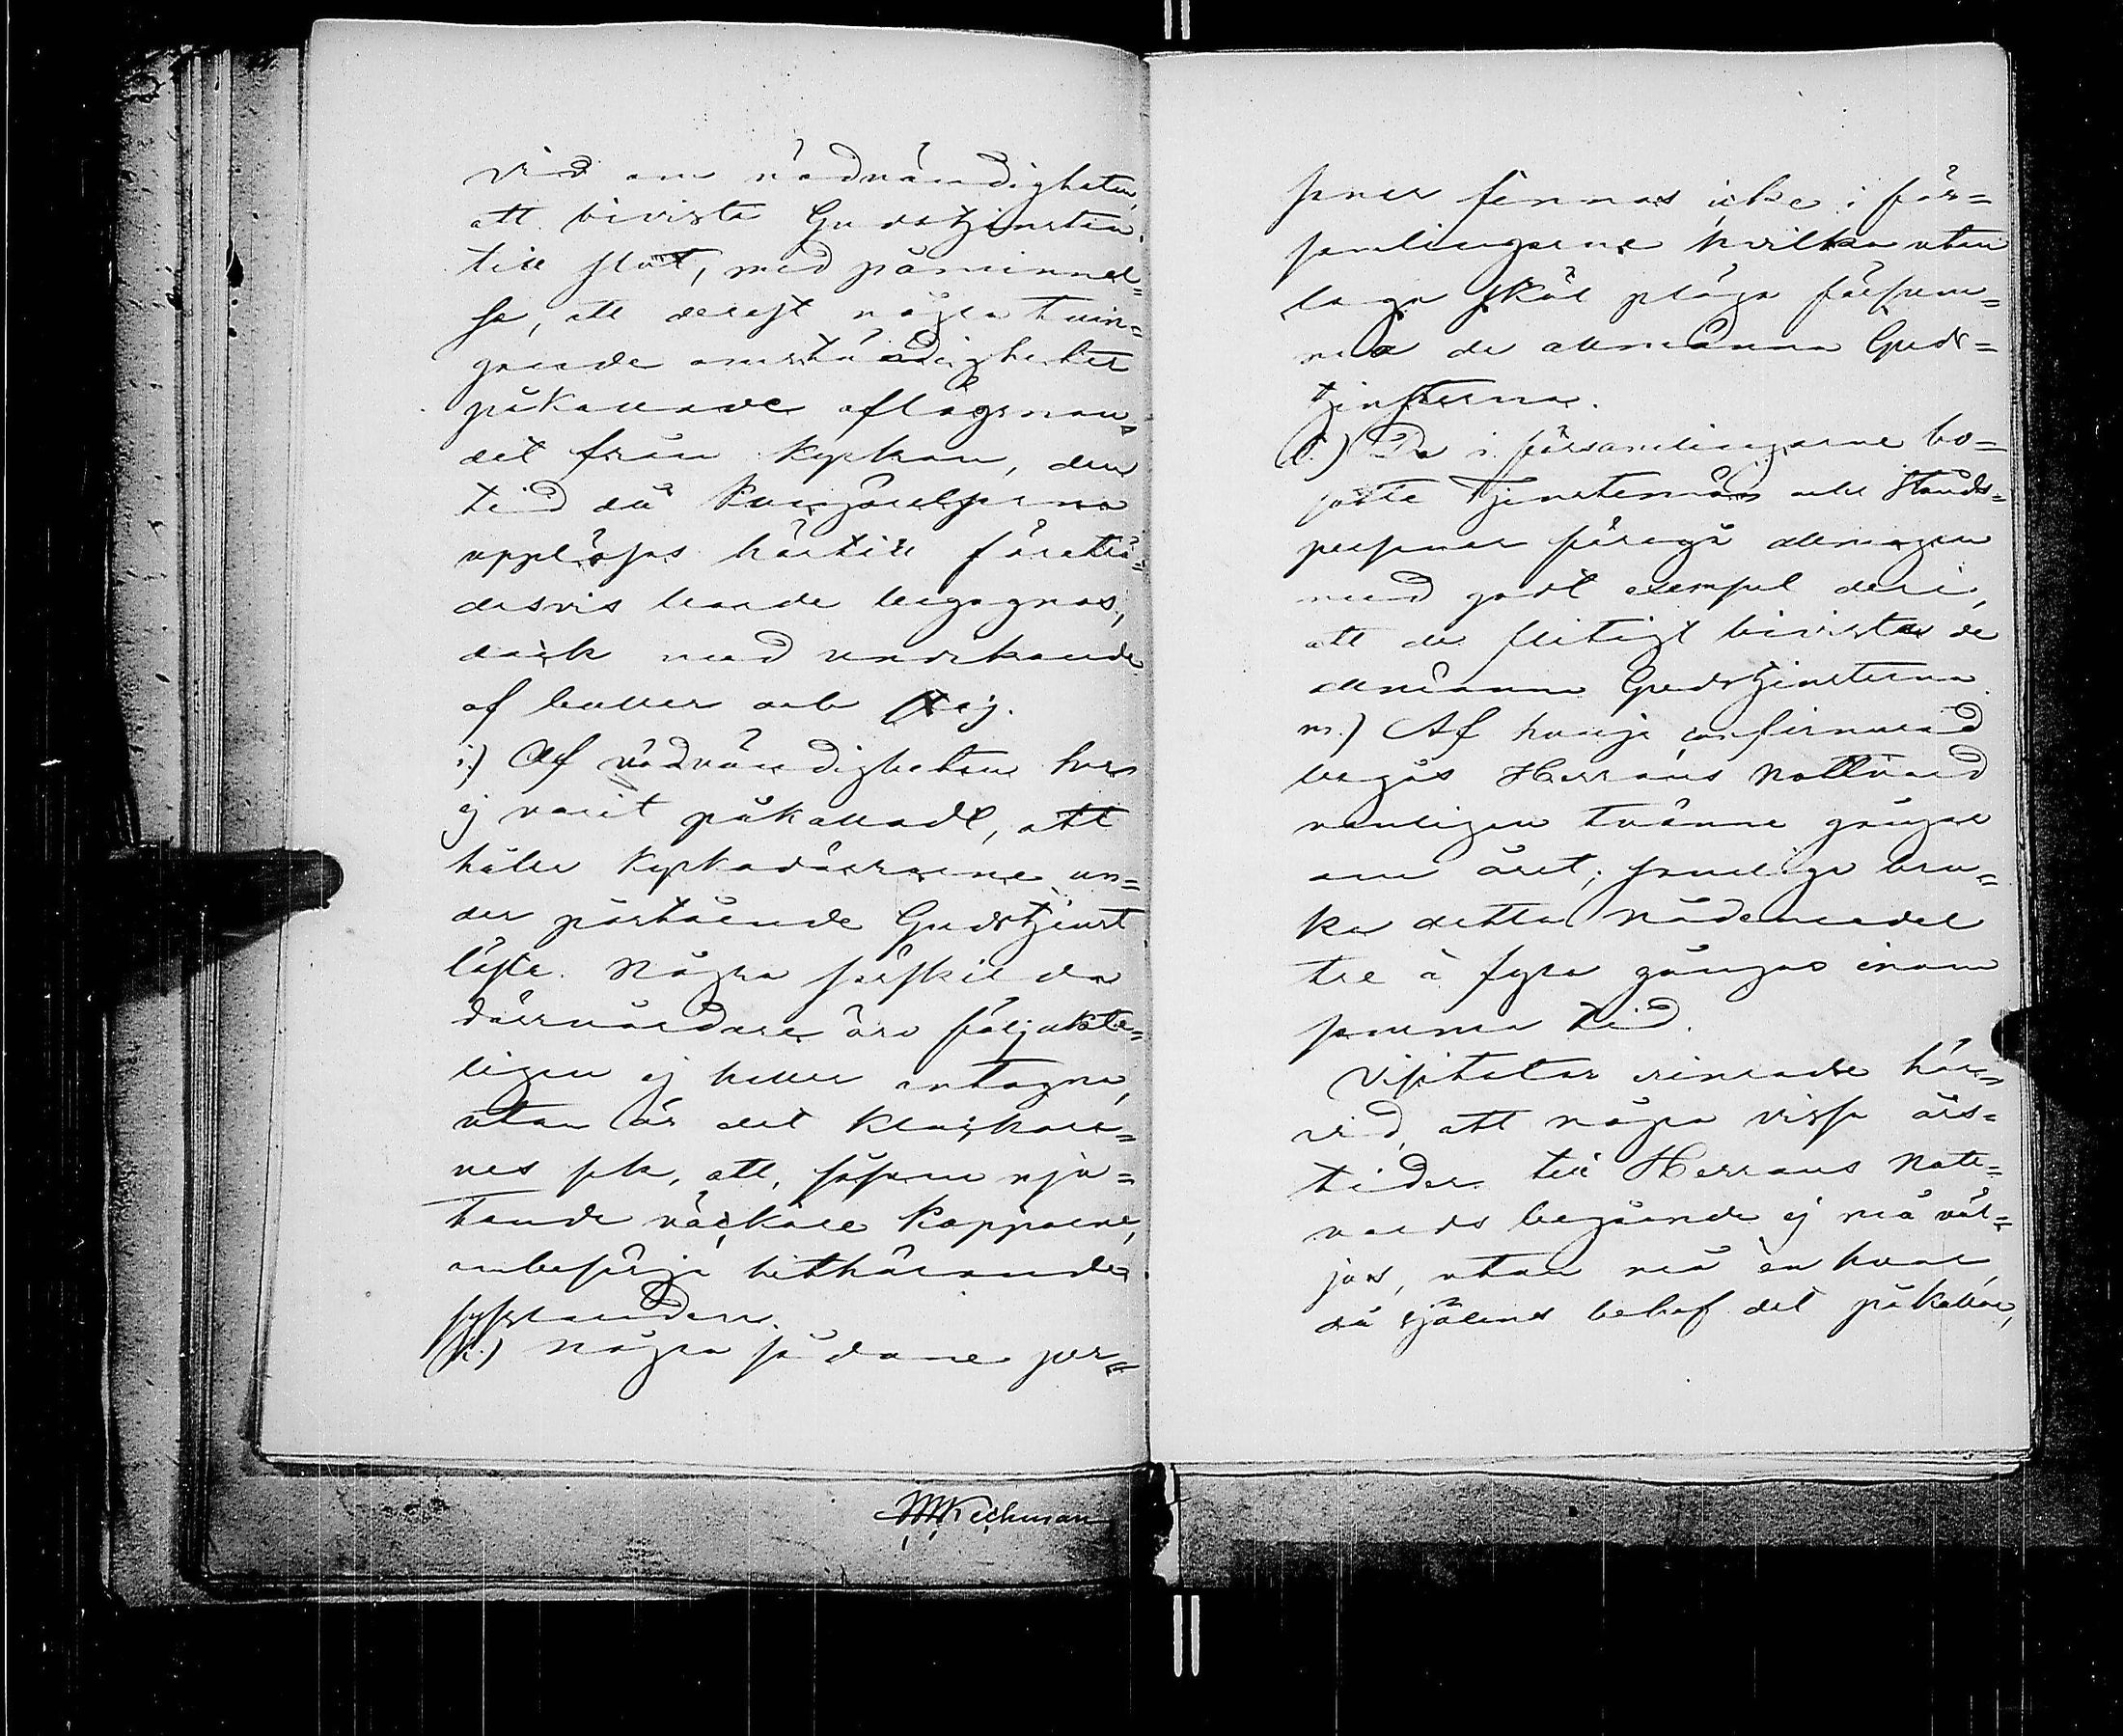 vid om nödvändigheten,
att bivista Gudstjensten
till slut, med påminnel=
se, att derest några tvin=
gande omständigheter
påkallade aflägsnan=
det från kyrkan, den
tid då kungörelserna
uppläsas härtill företrä=
desvis borde begagnas,
dock med undvikande
af buller och stoj.
i.) Af nödvändigheten har
ej varit påkalladt, att
hålla kyrkodörrarne un=
der påstående Gudstjenst
låsta. Några särskilda
dörrvårdare äro följakte=
ligen ej heller antagne,
utan är det klockare=
nes sak, att, såsom nju=
tande väckare kapporne,
ombesörja hithörande
sysslanden.
k.) Några sådane per=
soner finnas icke i för=
samlingarne hvilka utan
laga skäl pläga försum=
ma de allmänna Guds=
tjensterna.
l.) De i församlingarne bo=
satte Tjenstemän och Stånds=
personer föregå allmogen
med godt exempel deri,
att de flitigt bivista de
allmänna Gudstjensterna.
m.) Af hvarje confirmerad
begås Herrans Nattvard
vanligen tvänne gånger
om året; somliga bru=
ka detta Nådemedel
tre à fyra gånger inom
samma tid.
Visitator erinrade här=
vid, att några vissa års=
tider till Herrans Natt=
vards begående ej må väl=
jas, utan må en hvar,
då själens behof det påkallar,